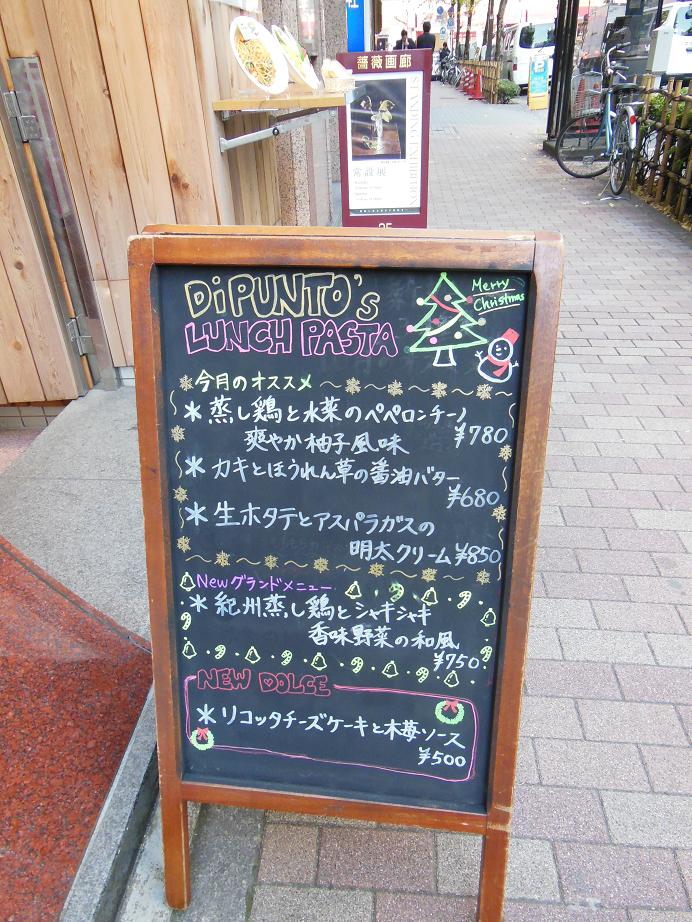 薔薇画廊
STANDING EXHIBITION
常設展
DiPUNTO's
LUNCH PASTA
Merry
Christmas
今月のオススメ
＊蒸し鶏と水菜のペペロンチーノ
爽やか柚子風味 ¥780
＊カキとほうれん草の醤油バター
¥680
＊生ホタテとアスパラガスの
明太クリーム ¥850
Newグランドメニュー
＊紀州蒸し鶏とシャキシャキ
香味野菜の和風
¥750
NEW DOLCE
＊リコッタチーズケーキと木苺ソース
¥500